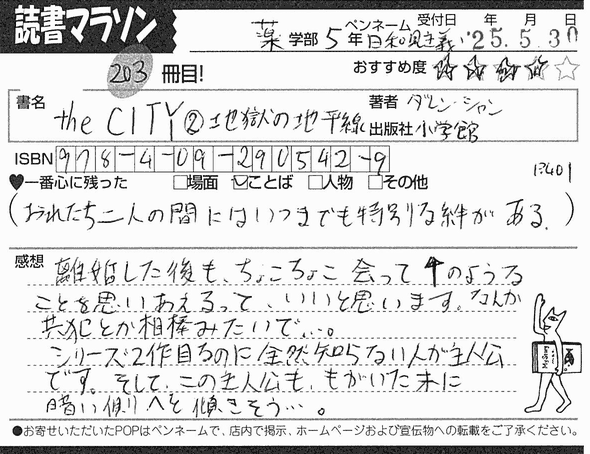 読書マラソン
ペンネーム 受付日 年 月 日
薬 学部 5年 日和見主義 '25.5.30
203 冊目! おすすめ度 ★★★★☆
書名 the CITY ②地獄の地平線
著者 ダレン・シャン
出版社 小学館
ISBN 978-4-09-290542-9
♥一番心に残った □場面 ☑ことば □人物 □その他
P.401
(おれたち二人の間にはいつまでも特別な絆がある。)
感想 離婚した後も、ちょこちょこ会って↑のような
ことを思いあえるって、いいと思います。なんか
共犯とか相棒みたいで…。
シリーズ2作目なのに全然知らない人が主人公
です。そして、この主人公も、もがいた末に
暗い側へと傾きそう…。
●お寄せいただいたPOPはペンネームで、店内で掲示、ホームページおよび宣伝物への転載をご了承ください。